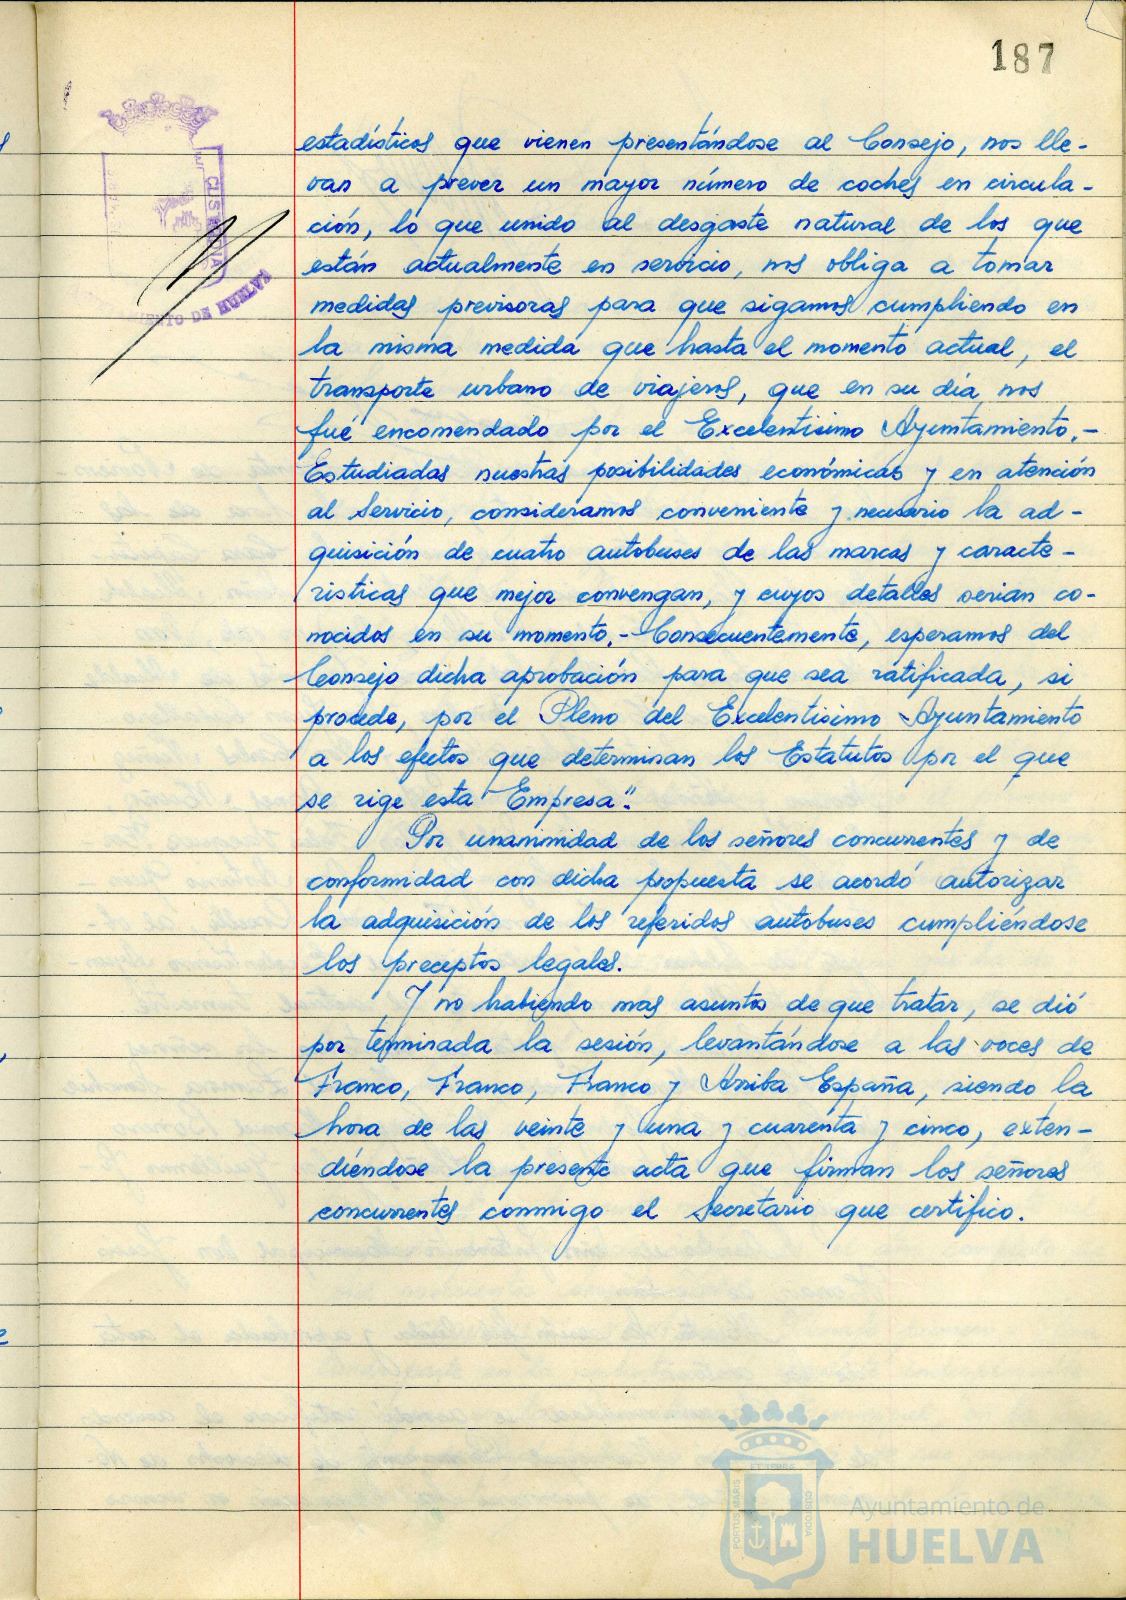 187
estadísticos que vienen presentándose al Consejo, nos lle-
van a prever un mayor número de coches en circula-
ción, lo que unido al desgaste natural de los que
están actualmente en servicio, nos obliga a tomar
medidas previsoras para que sigamos cumpliendo en
la misma medida que hasta el momento actual, el
transporte urbano de viajeros, que en su día nos
fué encomendado por el Excelentisimo Ayuntamiento.-
Estudiadas nuestras posibilidades económicas y en atención
al Servicio, consideramos conveniente y necesario la ad-
quisición de cuatro autobuses de las marcas y caracte-
risticas que mejor convengan, y cuyos detalles serian co-
nocidos en su momento.- Consecuentemente, esperamos del
Consejo dicha aprobación para que sea ratificada, si
procede, por el Pleno del Excelentisimo Ayuntamiento
a los efectos que determinan los Estatutos por el que
se rige esta Empresa".
Por unanimidad de los señores concurrentes y de
conformidad con dicha propuesta se acordó autorizar
la adquisición de los referidos autobuses cumpliéndose
los preceptos legales.
Y no habiendo mas asuntos de que tratar, se dió
por terminada la sesión, levantándose a las voces de
Franco, Franco, Franco y Arriba España, siendo la
hora de las veinte y una y cuarenta y cinco, exten-
diéndose la presente acta que firman los señores
concurrentes conmigo el Secretario que certifico.
CUSTODIA
DE HUELVA
PORTUS MARIS
ET TERRE
CUSTODIA
Ayuntamiento de
HUELVA